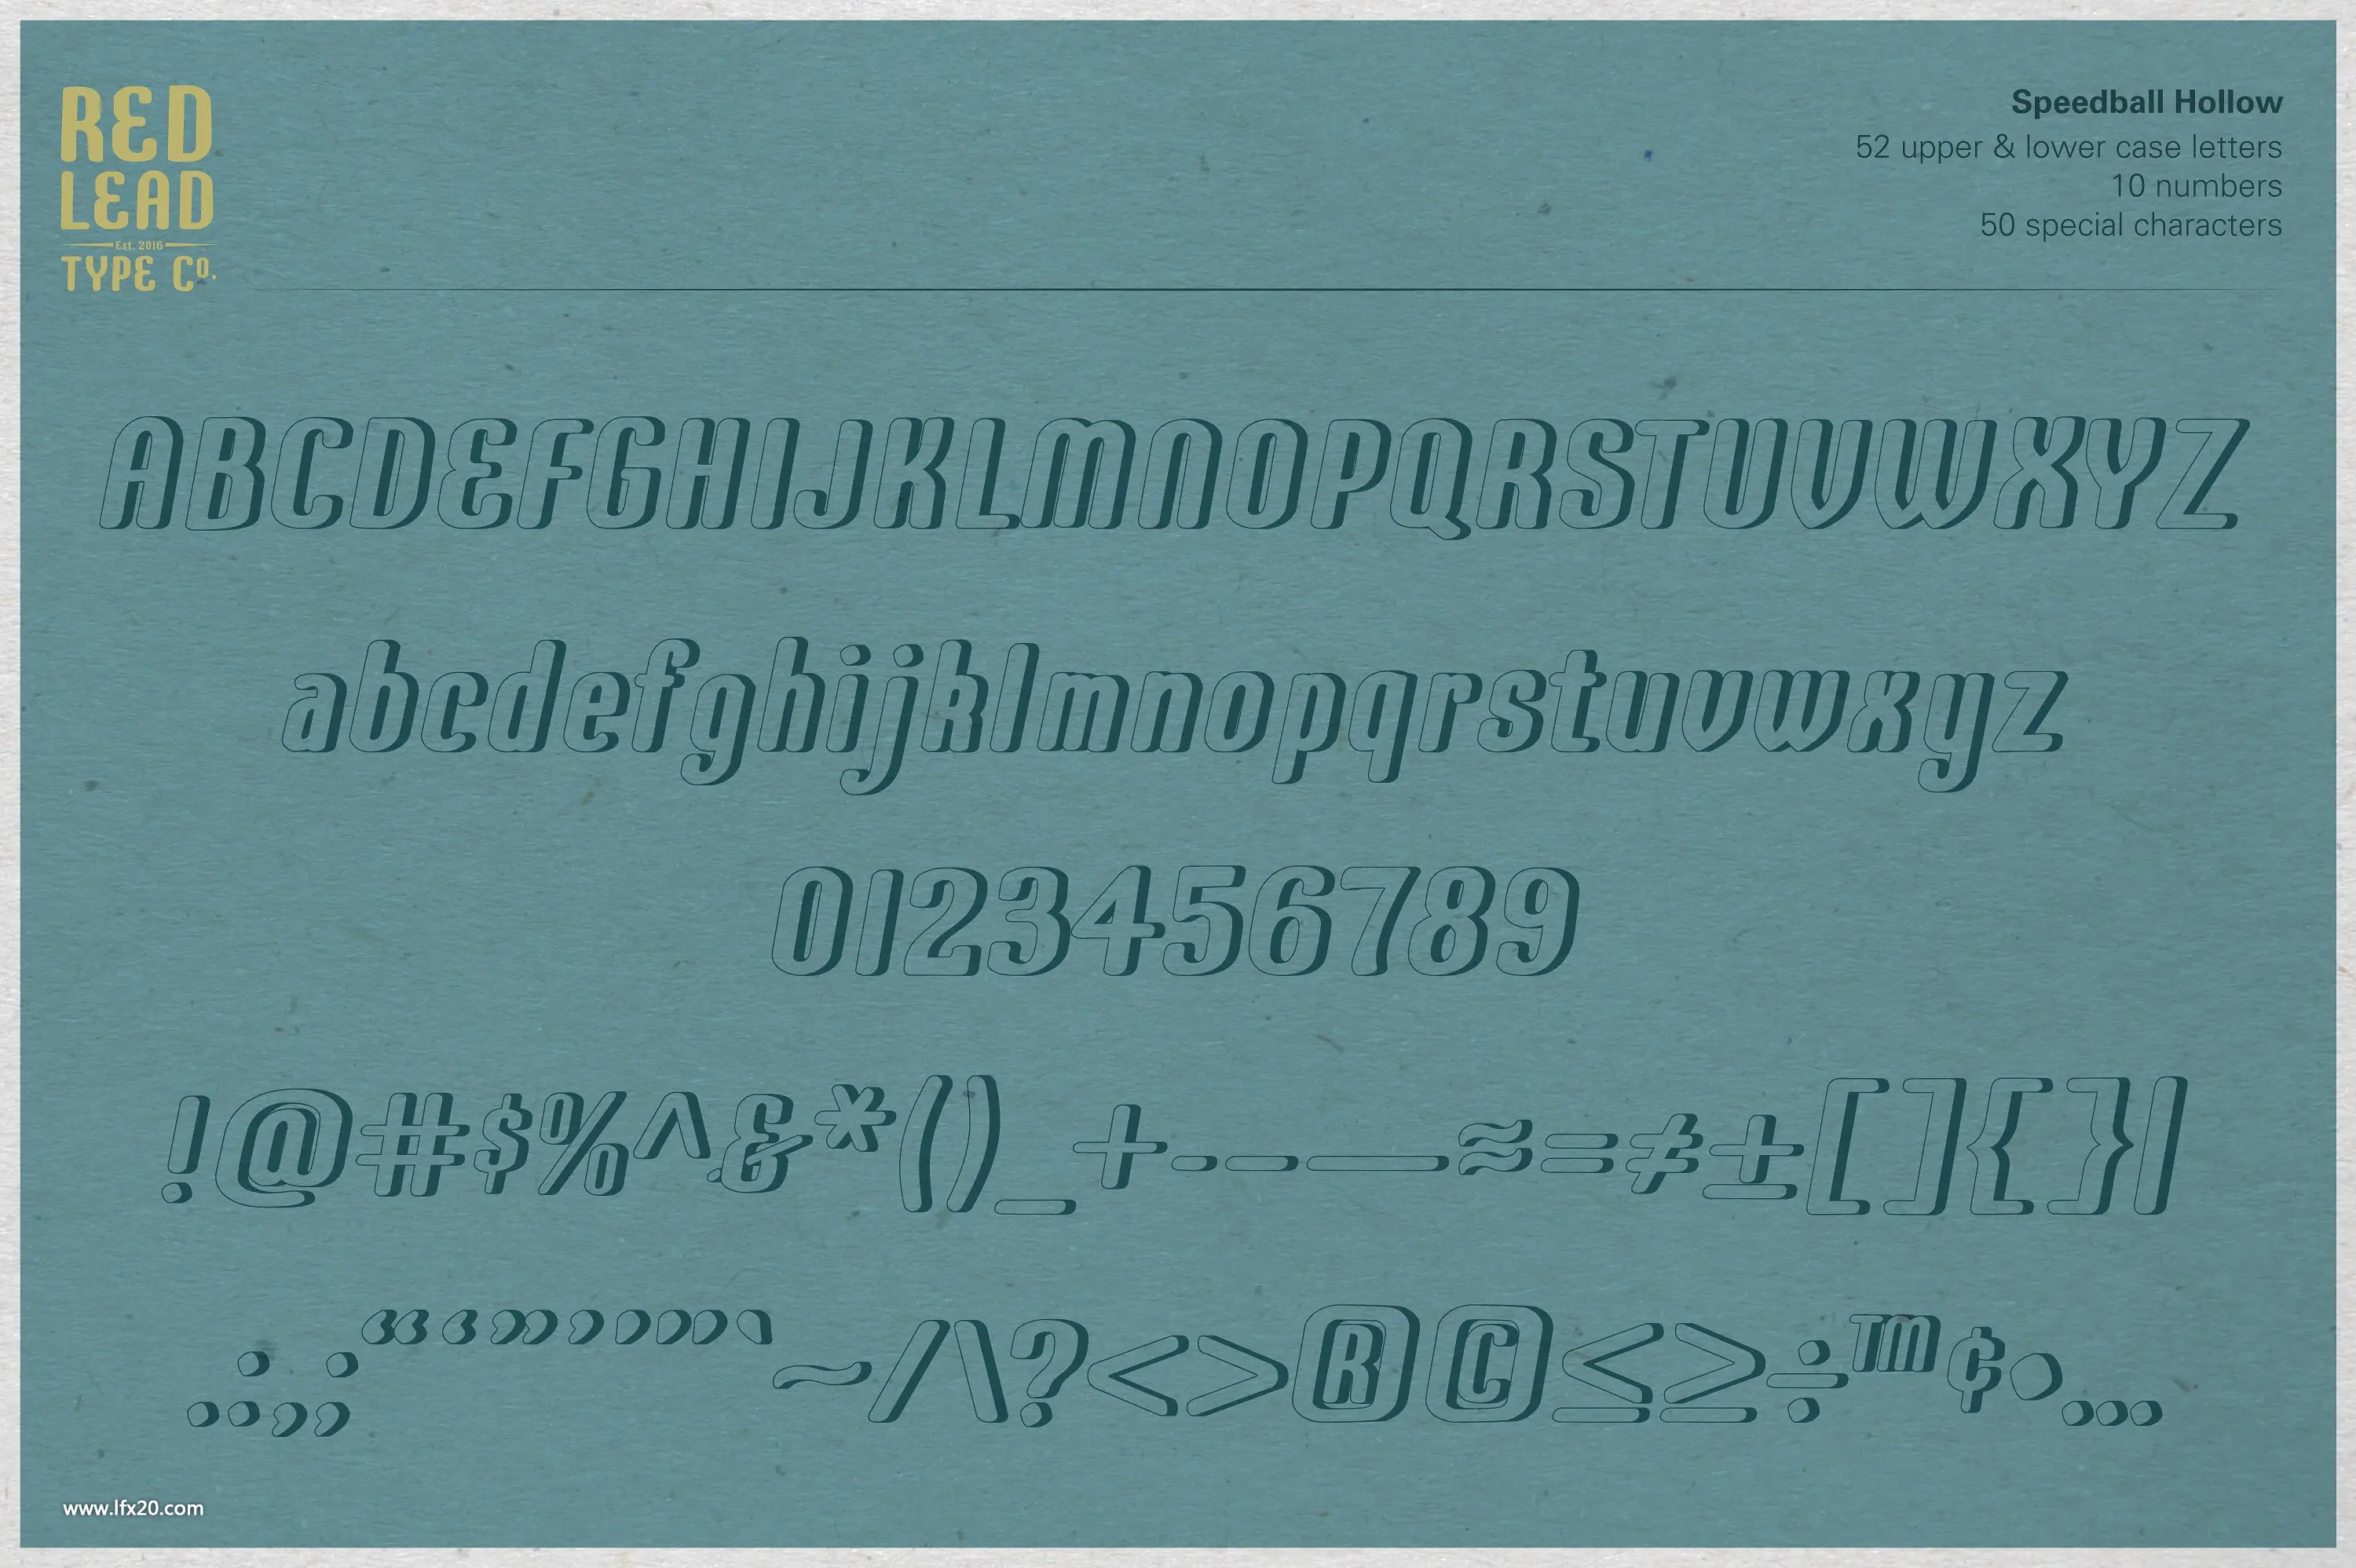 RED
LEAD
Est. 2016
TYPE Co.
Speedball Hollow
52 upper & lower case letters
10 numbers
50 special characters
ABCDEFGHIJKLMNOPQRSTUVWXYZ
abcdefghijklmnopqrstuvwxyz
0123456789
!@#$%^&*()_+-–—≈=≠±[]{}|
.:,;“‘”’"'`~/\?<>®©≤≥÷™¢•…
www.lfx20.com